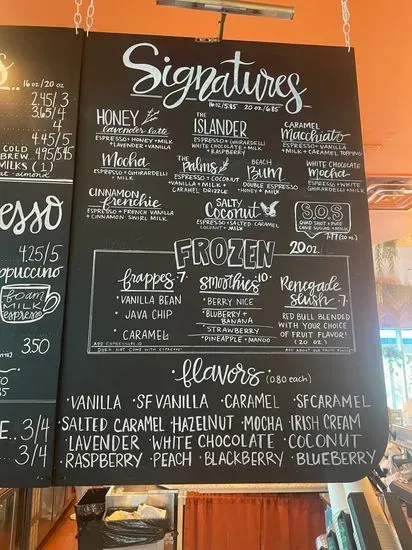 16 oz/20 oz
2.45/3
3.65/4
4
4.45/5
COLD BREW 4.75/5.45
MILKS (1)
almond
esso
4.25/5
ppuccino
foam
MILK
espresso
3.50
3/4
3/4
Signatures
16 oz/5.85 20 oz/6.85
HONEY
lavender latte
ESPRESSO + HONEY
+ LAVENDER + VANILLA
THE
ISLANDER
ESPRESSO + GHIRARDELLI
WHITE CHOCOLATE + MILK
+ RASPBERRY
CARAMEL
Macchiato
ESPRESSO + VANILLA
+ MILK + CARAMEL TOPPING
Mocha
ESPRESSO + GHIRARDELLI
+ MILK
THE
Palms
ESPRESSO + COCONUT
+ VANILLA + MILK +
CARAMEL DRIZZLE
BEACH
Bum
DOUBLE ESPRESSO
HONEY + MILK
WHITE CHOCOLATE
Mocha
ESPRESSO + WHITE
GHIRARDELLI + MILK
CINNAMON
frenchie
ESPRESSO + FRENCH VANILLA
+ CINNAMON SWIRL MILK
SALTY
Coconut
ESPRESSO + SALTED CARAMEL
COCONUT + MILK
S.O.S
QUAD SHOT + PURE
CANE SUGAR + MILK
7.77 (20 oz.)
FROZEN
20 oz.
frappes · 7
· VANILLA BEAN
· JAVA CHIP
· CARAMEL
ADD ESPRESSO
DOES NOT COME WITH ESPRESSO
smoothies · 10
· BERRY NICE
· BLUBERRY +
BANANA
STRAWBERRY
· PINEAPPLE + MANGO
Renegade
Slush · 7
RED BULL BLENDED
WITH YOUR CHOICE
OF FRUIT FLAVOR!
(20 OZ.)
· flavors · (0.80 each)
· VANILLA · SF VANILLA · CARAMEL · SF CARAMEL
SALTED CARAMEL · HAZELNUT · MOCHA · IRISH CREAM
LAVENDER · WHITE CHOCOLATE · COCONUT
RASPBERRY · PEACH · BLACKBERRY · BLUEBERRY